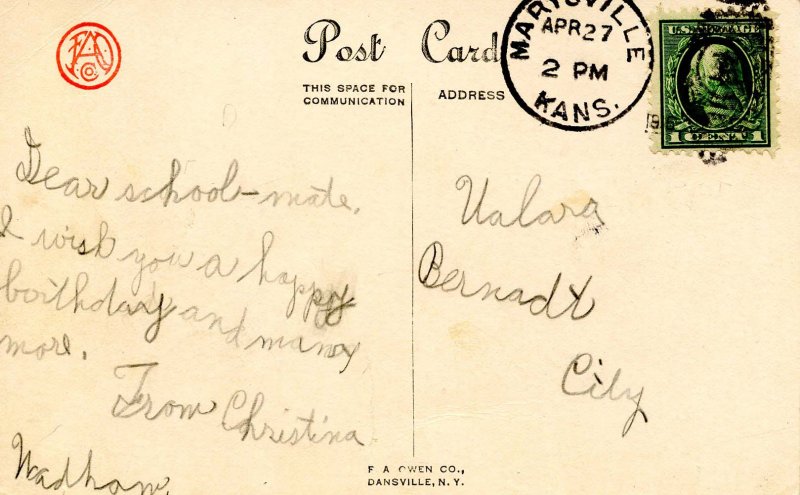 FAO Co.
Post Card
THIS SPACE FOR
COMMUNICATION
ADDRESS
MARYSVILLE
APR 27
2 PM
KANS.
U.S. POSTAGE
1 CENT 1
Dear school-mate.
I wish you a happy
birthday and many
more.
From Christina
Wadham.
Ualara
Bernadt
City
F A OWEN CO.,
DANSVILLE, N. Y.